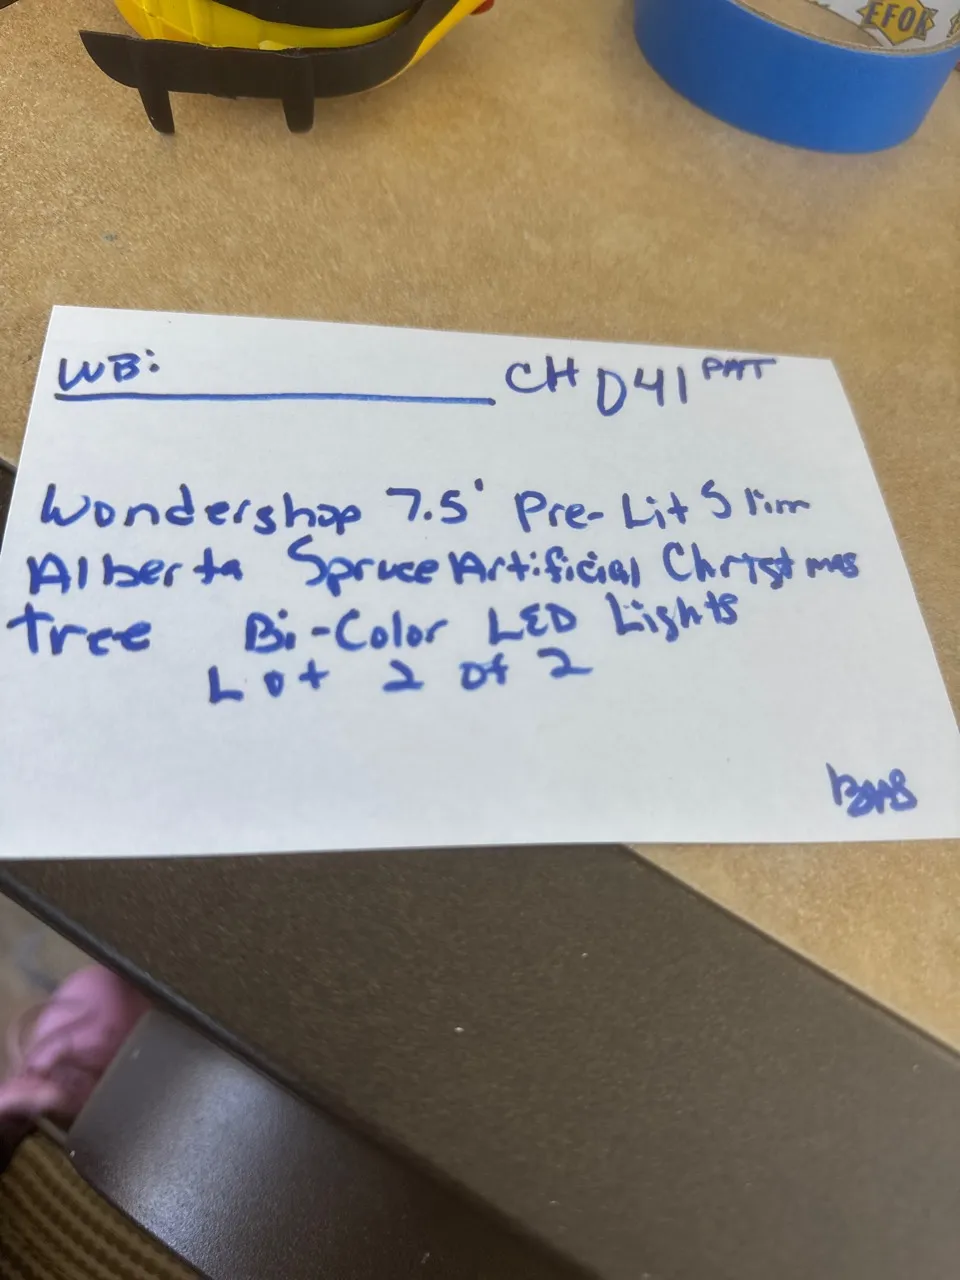 EFOR
WB: CH D41 PAT
Wondershop 7.5' Pre-Lit Slim
Alberta Spruce Artificial Christmas
tree Bi-Color LED Lights
Lot 2 of 2